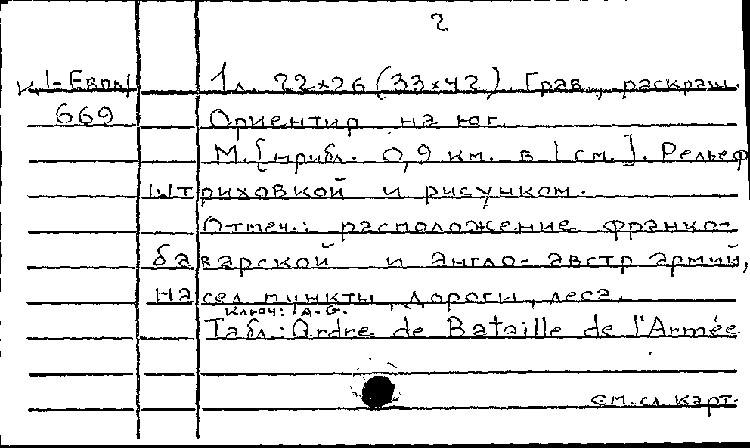 2
К 1-Европ 1 л. 22×26 (33×42). Грав., раскраш.
669 Ориентир. на юг.
М. [прибл. 0,9 км. в 1 см.]. Рельеф
штриховкой и рисунком.
Отмеч.: расположение франко-
баварской и англо-австр. армий,
насел. пункты, дороги, леса.
Ключ: A-G.
Табл.: Ordre de Bataille de l'Armée
см. сл. карт.